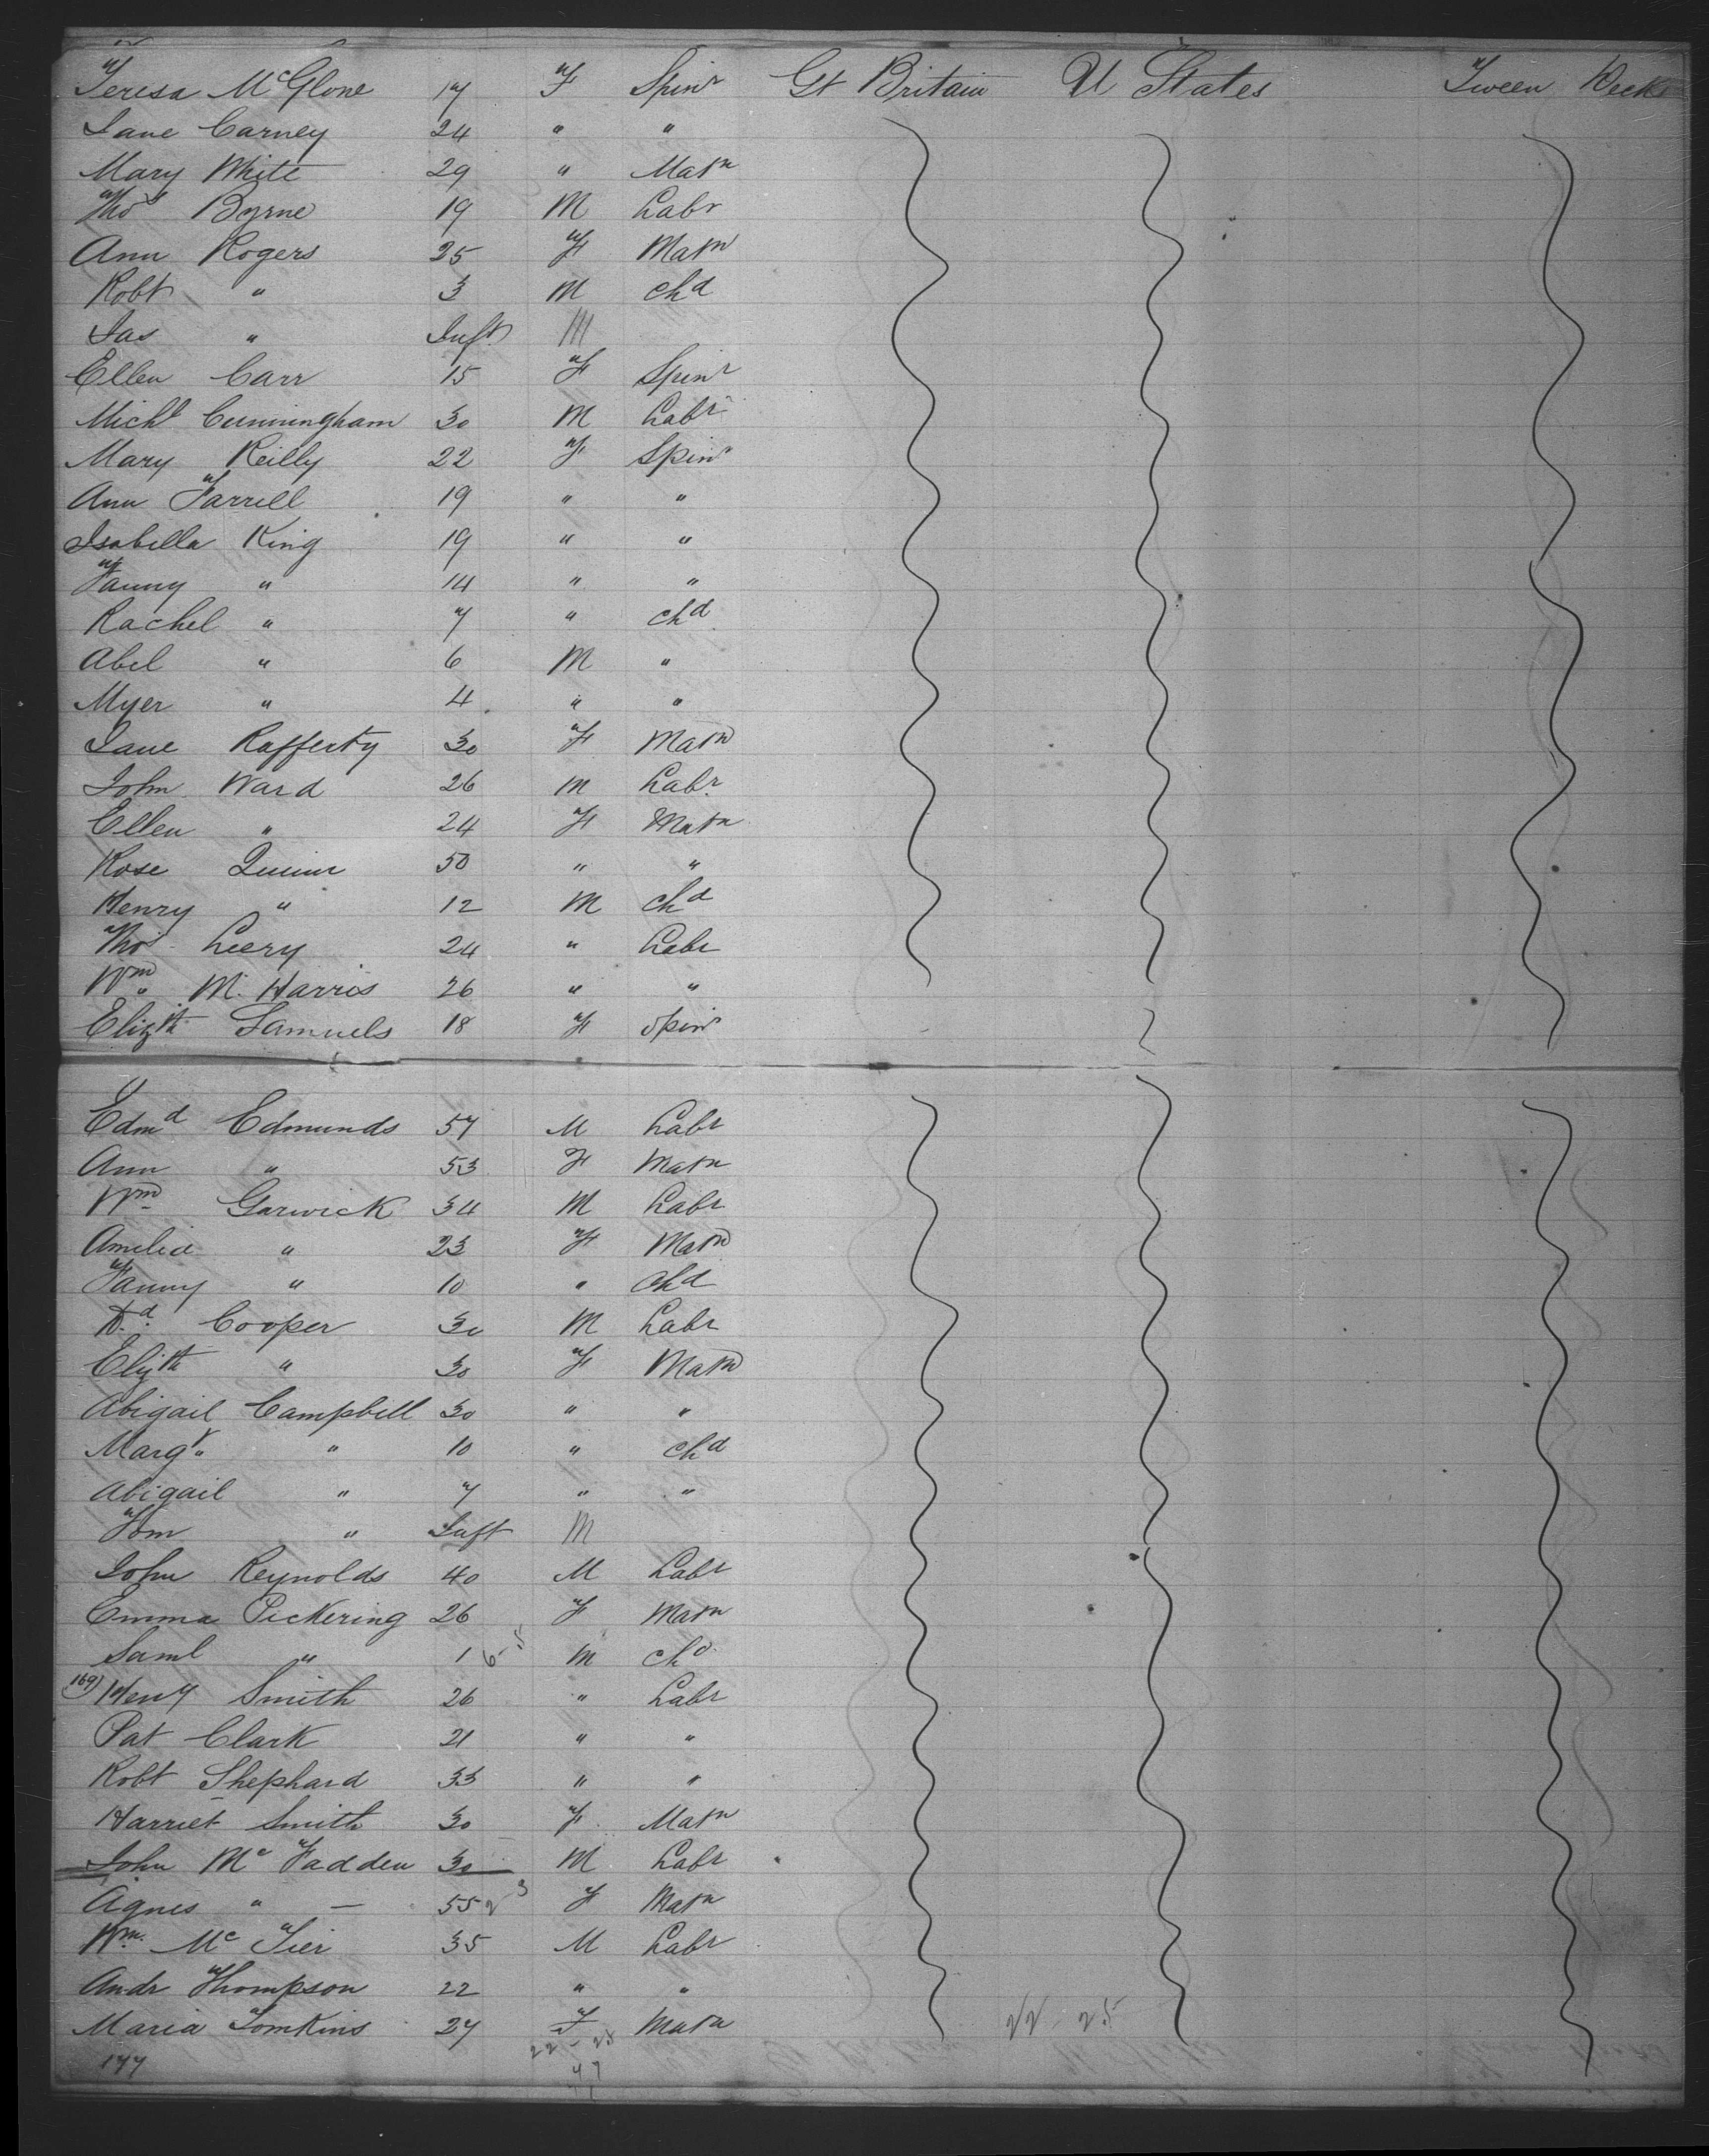 Teresa McGlone 17 F Spinr Gt Britain U States Tween Decks
Jane Carney 24 " "
Mary White 29 " Matn
Thos Byrne 19 M Labr
Ann Rogers 25 F Matn
Robt " 3 M chd
Jas " Inft M
Ellen Carr 15 F Spinr
Michl Cunningham 30 M Labr
Mary Reilly 22 F Spinr
Ann Farrell 19 " "
Isabella King 19 " "
Fanny " 14 " "
Rachel " 7 " chd
Abel " 6 M "
Myer " 4 " "
Jane Rafferty 30 F Matn
John Ward 26 M Labr
Ellen " 24 F Matn
Rose Quinn 50 " "
Henry " 12 M chd
Thos Leery 24 " Labr
Wm M. Harris 26 " "
Elizth Samuels 18 F Spinr
Edmd Edmunds 57 M Labr
Ann " 53 F Matn
Wm Garwick 34 M Labr
Amelia " 23 F Matn
Fanny " 10 " chd
Cooper 30 M Labr
Elizth " 30 F Matn
Abigail Campbell 30 " "
Margt " 10 " chd
Abigail " 7 " "
Tom " Inft M
John Reynolds 40 M Labr
Emma Pickering 26 F Matn
Saml " 1 M chd
169 Heny Smith 26 " Labr
Pat Clark 21 " "
Robt Shephard 33 " "
Harriet Smith 30 F Matn
John McFadden 30 M Labr
Agnes " — 55 F Matn
Wm McTier 35 M Labr
Andr Thompson 22 " "
Maria Tomkins 27 F Matn 22 - 25
177 22 - 25
47